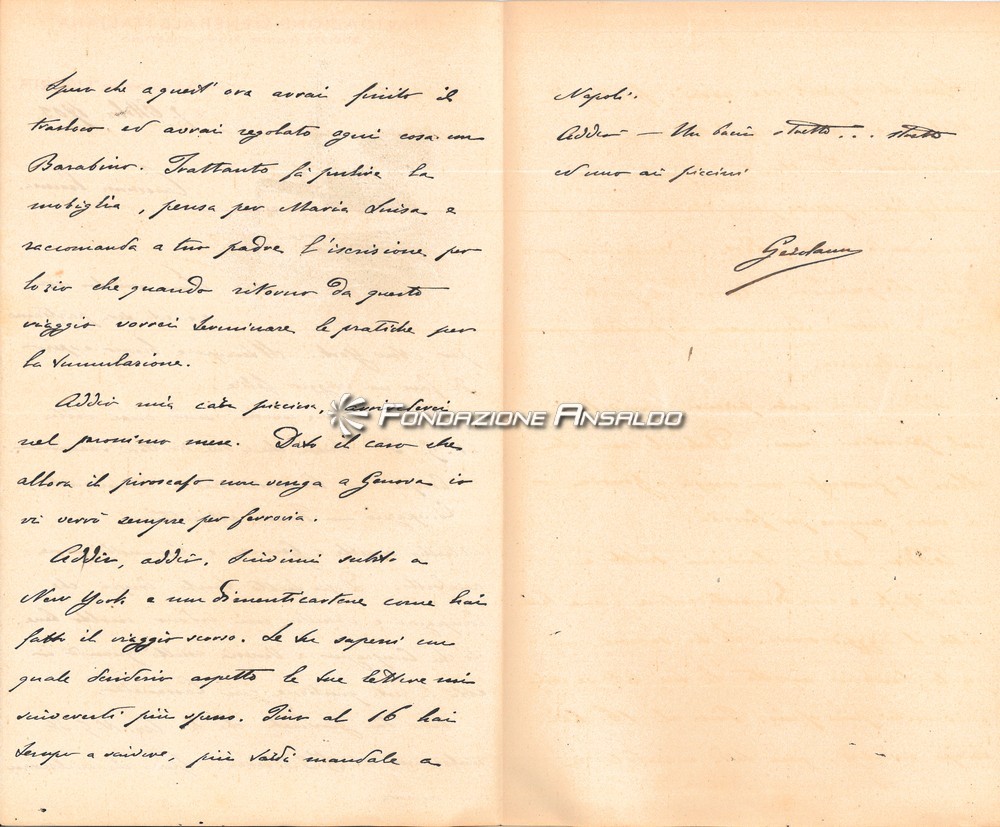 Spero che a quest'ora avrai finito il
trasloco ed avrai regolato ogni cosa con
Barabino. Trattanto fà pulire la
mobiglia, pensa per Maria Luisa e
raccomanda a tuo padre l'iscrizione per
lo zio che quando ritorno da questo
viaggio vorrei terminare le pratiche per
la tumulazione.
Addio mia cara piccina, arrivederci
nel prossimo mese. Dato il caso che
allora il piroscafo non venga a Genova io
vi verrò sempre per ferrovia.
Addio, addio. Scrivimi subito a
New York e non dimenticartene come hai
fatto il viaggio scorso. Se tu sapessi con
quale desiderio aspetto le tue lettere mi
scriveresti più spesso. Fino al 16 hai
tempo a scrivere, più tardi mandale a
Napoli.
Addio — Un bacio stretto... stretto
ed uno ai piccini
Gerolamo
Fondazione Ansaldo